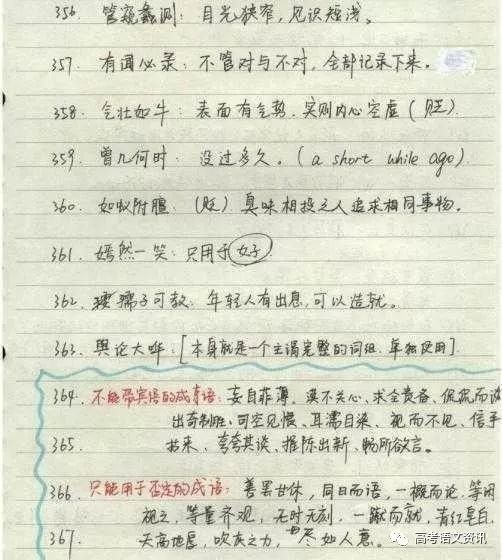 356. 管窥蠡测：目光狭窄，见识短浅。
357. 有闻必录：不管对与不对，全部记录下来。
358. 气壮如牛：表面有气势，实则内心空虚（贬）.
359. 曾几何时：没过多久。（a short while ago）.
360. 如蚁附膻：（贬）臭味相投之人追求相同事物。
361. 嫣然一笑：只用于女子
362. 孺子可教：年轻人有出息，可以造就。
363. 舆论大哗：[本身就是一个主谓完整的词组，单独使用].
364. 不能带宾语的成语：妄自菲薄，漠不关心、求全责备、侃侃而谈
出奇制胜、司空见惯、耳濡目染、视而不见、信手
365. 拈来、夸夸其谈、推陈出新、畅所欲言。
366. 只能用于否定的成语：善罢甘休，同日而语，一概而论，等闲
视之，等量齐观，无时无刻，一蹴而就，青红皂白，
367. 天高地厚，吹灰之力，尽如人意。
高考语文资讯